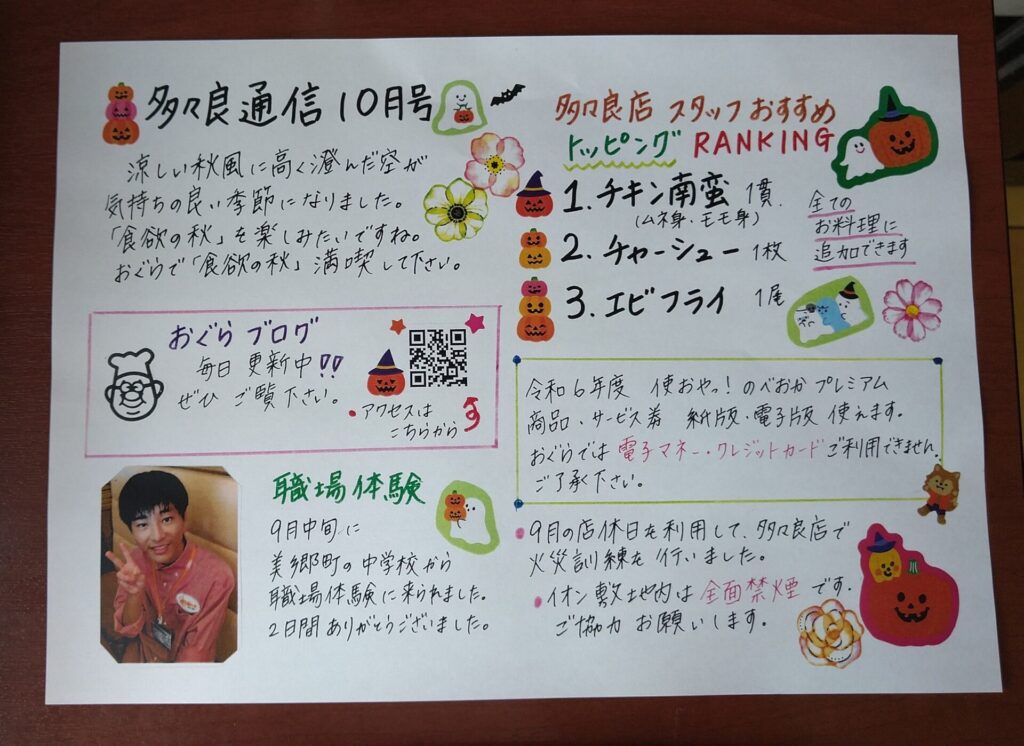 多々良通信10月号
涼しい秋風に高く澄んだ空が
気持ちの良い季節になりました。
「食欲の秋」を楽しみたいですね。
おぐらで「食欲の秋」満喫して下さい。
おぐらブログ
毎日更新中!!
ぜひ ご覧下さい。
•アクセスは
こちらから
職場体験
9月中旬に
美郷町の中学校から
職場体験に来られました。
2日間ありがとうございました。
多々良店 スタッフおすすめ
トッピング RANKING
1.チキン南蛮 1貫
(ムネ身・モモ身)
2.チャーシュー 1枚
3.エビフライ 1尾
全ての
お料理に
追加できます
令和6年度 使おやっ!のべおかプレミアム
商品・サービス券 紙版・電子版 使えます。
おぐらでは電子マネー・クレジットカードご利用できません。
ご了承下さい。
•9月の店休日を利用して、多々良店で
火災訓練を行いました。
•イオン敷地内は全面禁煙です。
ご協力お願いします。